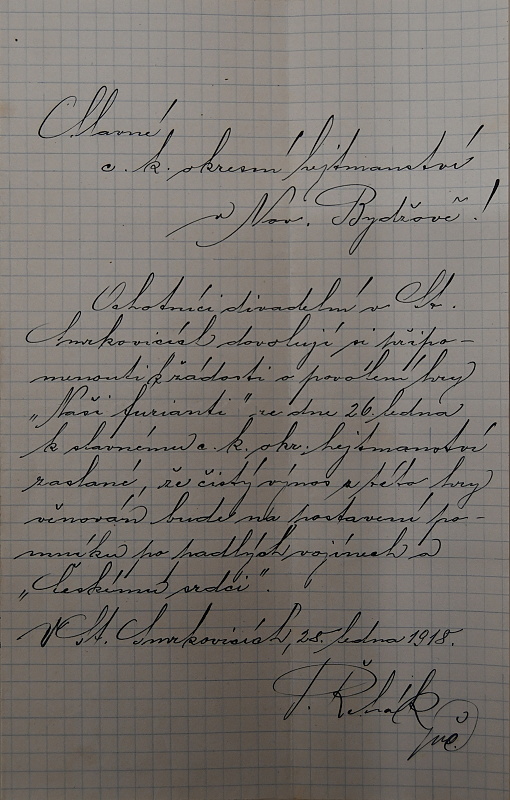 Slavné
c. k. okresní hejtmanství
v Nov. Bydžově!
Ochotníci divadelní v St.
Smrkovicích dovolují si připo-
menouti k žádosti o povolení hry
„Naši furianti" ze dne 26. ledna
k slavnému c. k. okr. hejtmanství
zaslané, že čistý výnos z této hry
věnován bude na postavení po-
mníku po padlých vojínech a
„Českému srdci".
V St. Smrkovicích, 28. ledna 1918.
Řehák